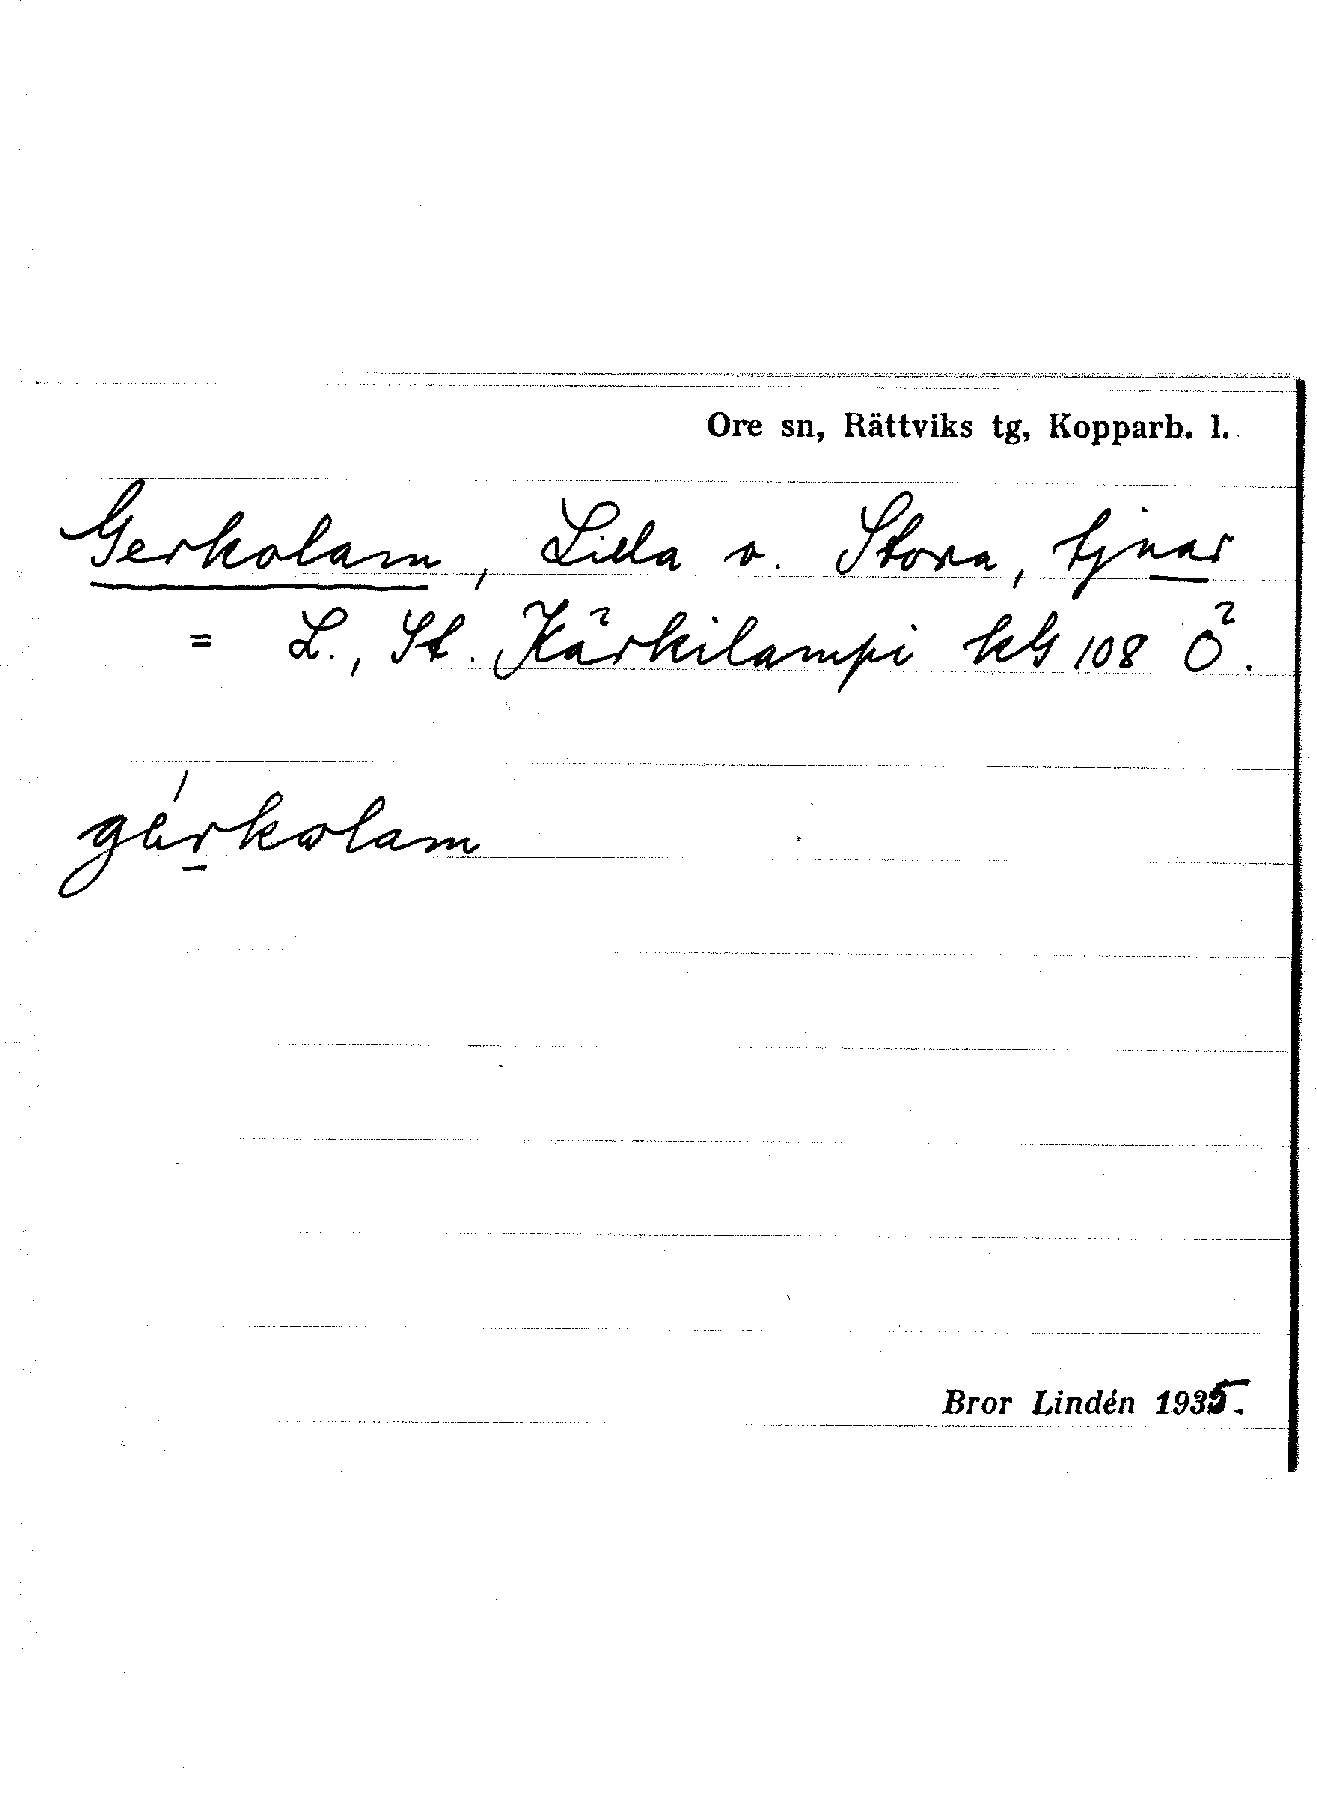 Ore sn, Rättviks tg, Kopparb. l.
Gerkolam, Lilla o. Stora, tjnar
= L., St. Kärkilampi kbl 108 Ö.
gérkolam
Bror Lindén 1935.